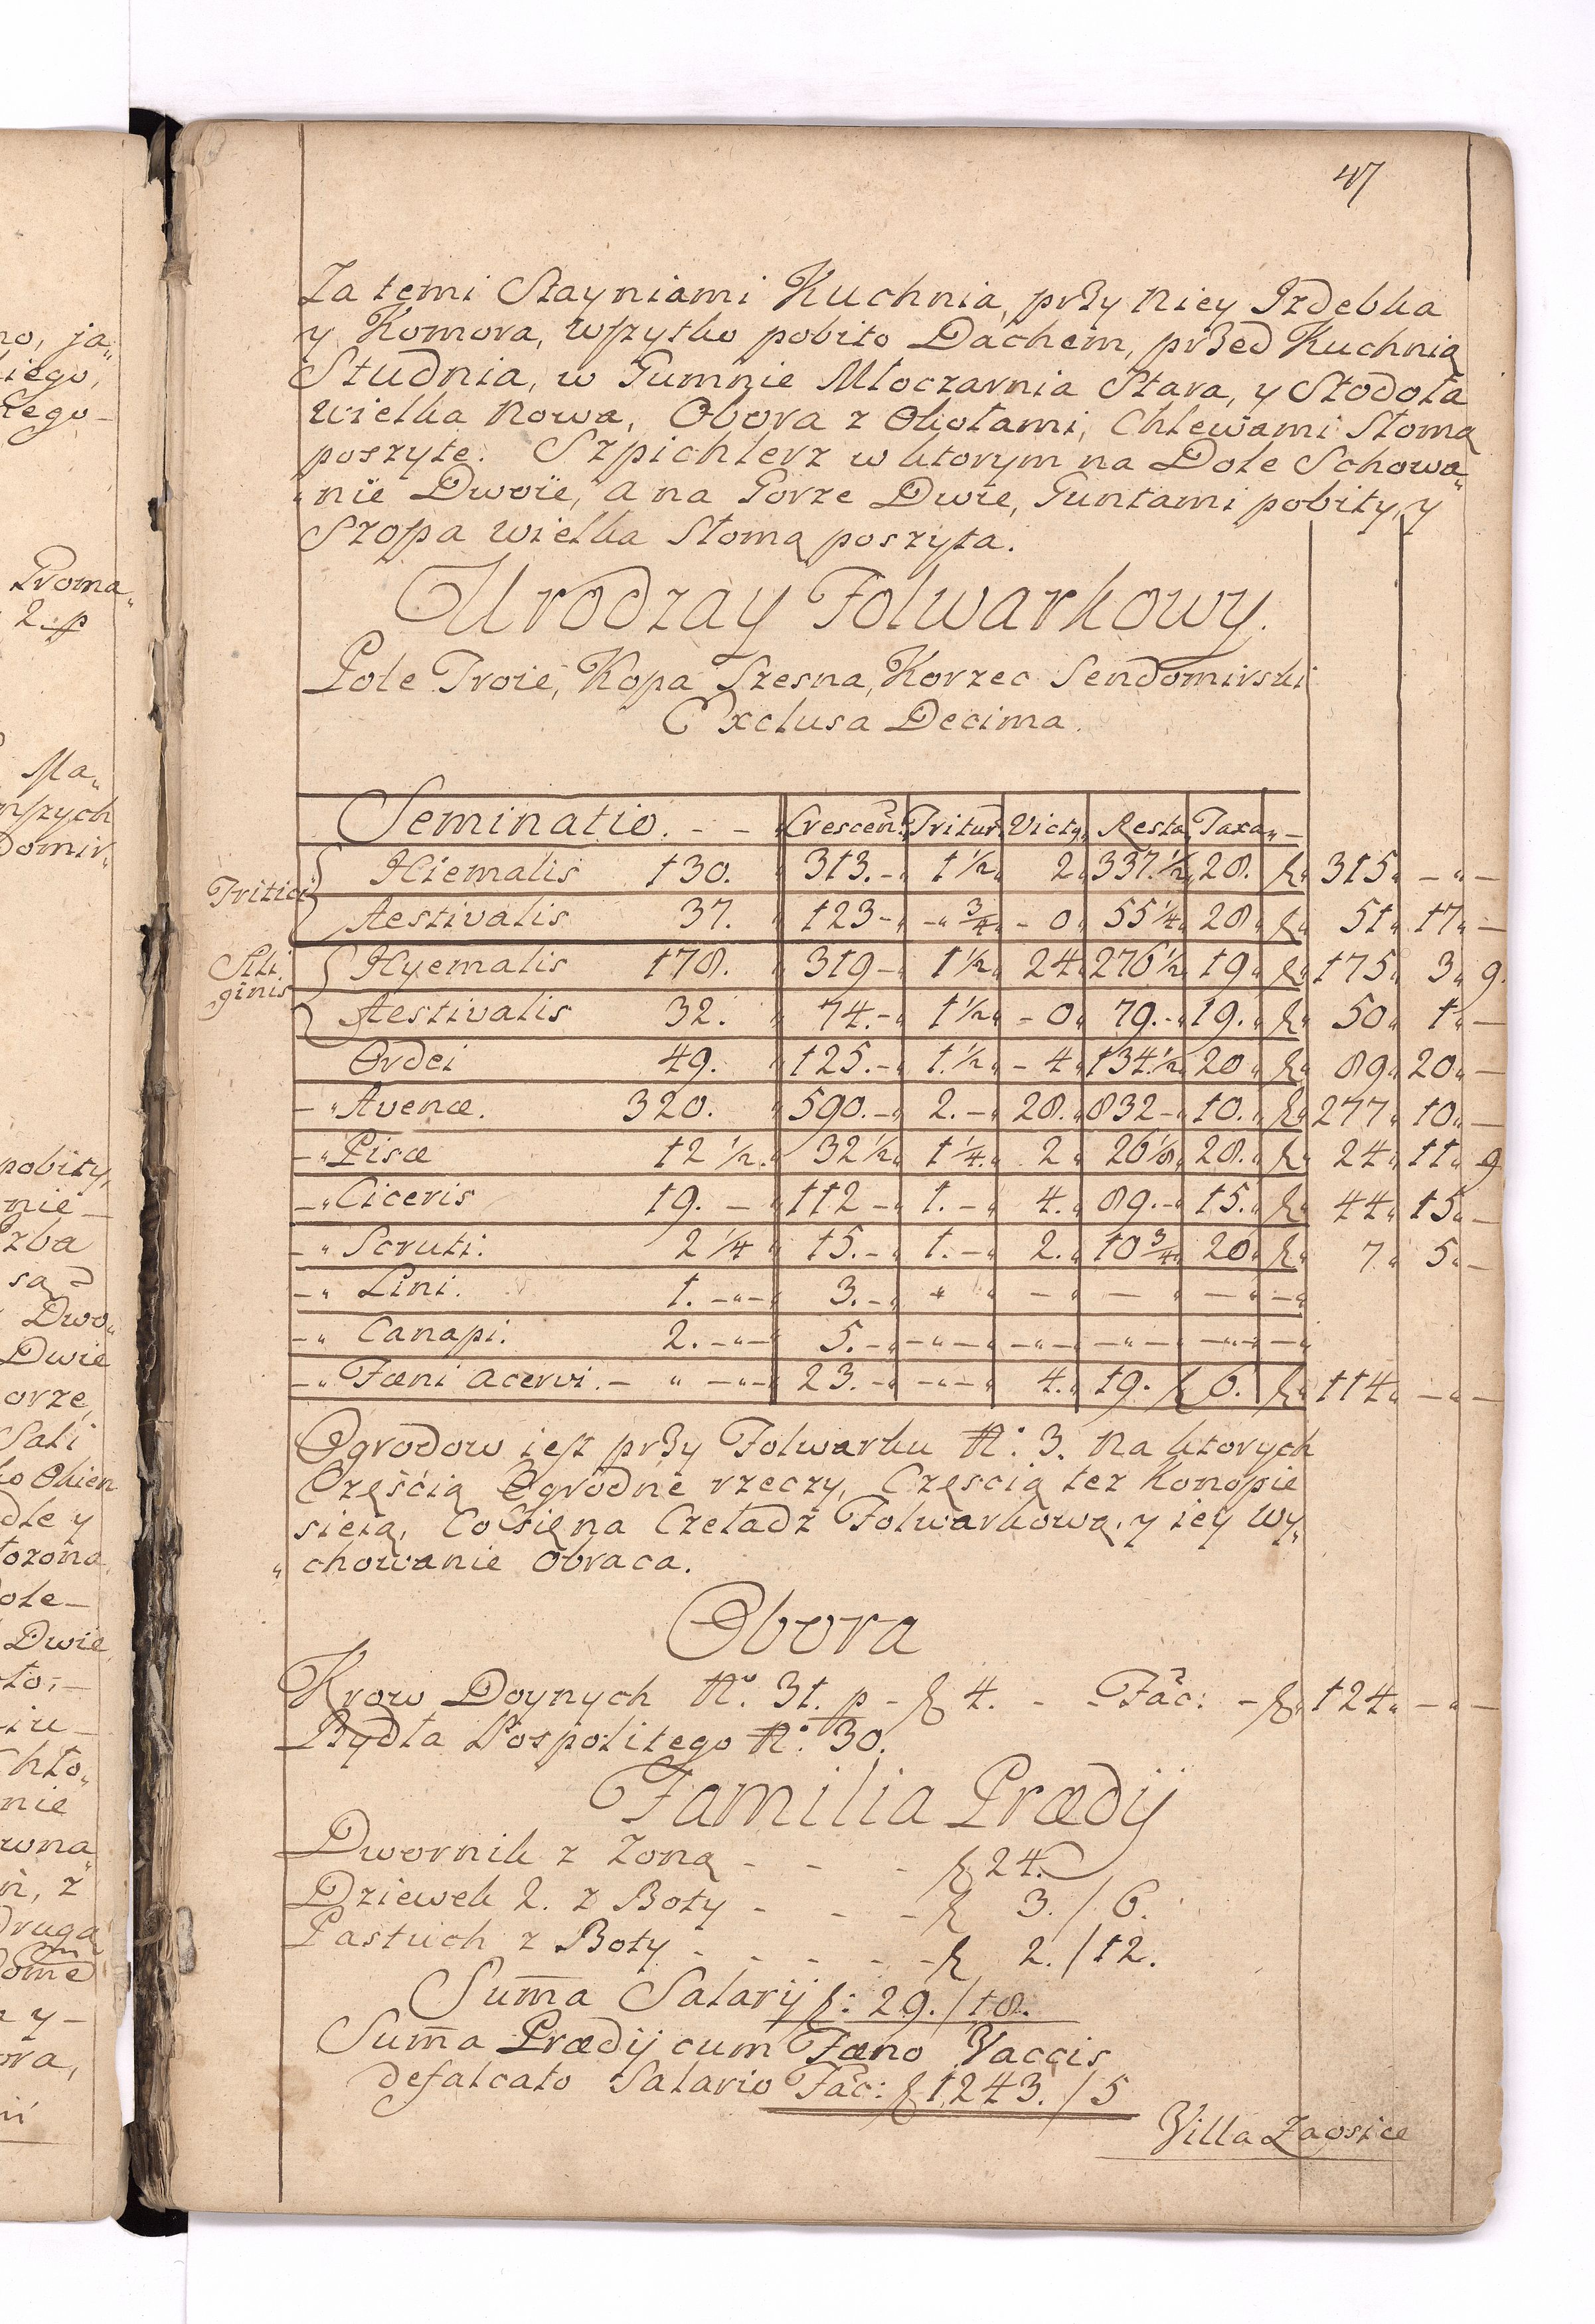 47
Za temi Stayniami Kuchnia, przy niey Izdebka
y Komora, wszytko pobito Dachem, przed Kuchnią
Studnia, w Gumnie Młoczarnia Stara, y Stodoła
wielka Nowa, Obora z Okołami, Chlewami Słomą
poszyte. Szpichlerz w ktorym na Dole Schowa„
„nie Dwoie, a na Gorze Dwie, Guntami pobity, y
Szopa wielka Słomą poszyta.
Urodzay Folwarkowy.
Pole Troie, Kopa Szesna, Korzec Sendomirski
Exclusa Decima.
Seminatio. - - Crescen: Tritur: Vict„ Resta„ Taxa„ -
Tritici Hiemalis 130. 313.- 1½ 2 337.½ 28. f. 315 - -
Aestivalis 37. 123 - - ¾ - 0 55¼ 28 f. 51 17 -
Sili„ginis Hyemalis 178. 319 - 1½ 24 276½ 19 f. 175 3 9.
Aestivalis 32. 74.- 1½ - 0 79.- 19. f. 50 1 -
Ordei 49. 125.- 1.½ - 4 134.½ 20 f. 89 20 -
-„ Avenæ. 320. 590.- 2.- 28. 832 - 10. f. 277 10 -
-„ Pisæ 12½. 32½ 1¼ 2 26⅛ 28. f. 24 11 9
-„ Ciceris 19. - 112 - 1.- 4. 89.- 15. f. 44 15 -
-„ Scruti. 2¼ 15.- 1.- 2. 10¾ 20 f. 7 5 -
-„ Lini. 1. - - 3.- „ - - - -
-„ Canapi. 2. - - 5.- - - - - - - - - -
-„ Fæni acervi. - „ - - 23.- - - 4. 19. f 6. f. 114 - -
Ogrodow iest przy Folwarku N: 3. na ktorych
Częścią Ogrodne rzeczy, Częscią tez Konopie
sieią, Co się na Czeladź Folwarkową, y iey wy„
„chowanie obraca.
Obora
Krow Doynych N: 31. p - f 4. - - Fac: - f. 124 - -
Bydła Pospolitego N: 30.
Familia Prædij
Dwornik z Zoną - - - f 24.
Dziewek 2. z Boty - - - f 3./6.
Pastuch z Boty - - - - - f 2./12.
Suma Salarij f: 29./18.
Suma Prædij cum Fæno Vaccis
defalcato Salario Fac: f 1243./5
Villa Zagsice